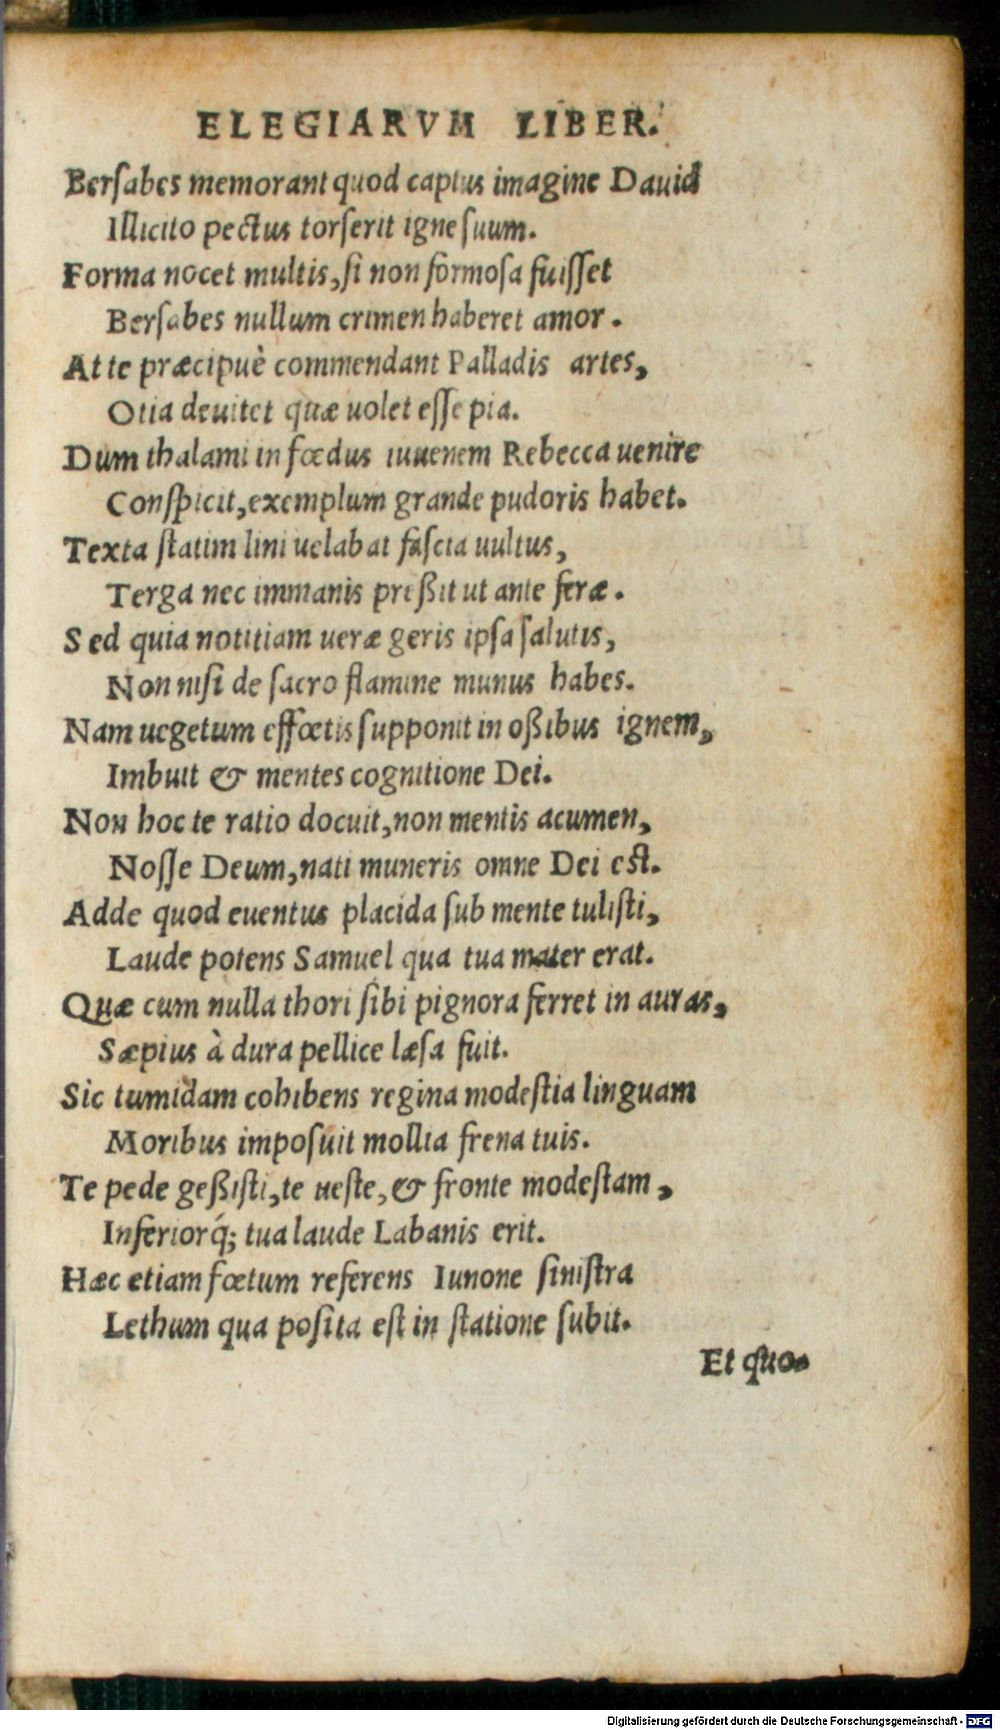 ELEGIARVM LIBER.
Berſabes memorant quod captus imagine Dauid
Illicito pectus torſerit igne ſuum.
Forma nocet multis, ſi non formoſa fuiſſet
Berſabes nullum crimen haberet amor.
At te præcipuè commendant Palladis artes,
Otia deuitet quæ uolet eſſe pia.
Dum thalami in fœdus iuuenem Rebecca uenire
Conſpicit, exemplum grande pudoris habet.
Texta ſtatim lini uelabat faſcia uultus,
Terga nec immanis preßit ut ante feræ.
Sed quia notitiam ueræ geris ipſa ſalutis,
Non niſi de ſacro flamine munus habes.
Nam uegetum effœtis ſupponit in oßibus ignem,
Imbuit & mentes cognitione Dei.
Non hoc te ratio docuit, non mentis acumen,
Noſſe Deum, nati muneris omne Dei eſt.
Adde quod euentus placida ſub mente tuliſti,
Laude potens Samuel qua tua mater erat.
Quæ cum nulla thori ſibi pignora ferret in auras,
Sæpius à dura pellice læſa fuit.
Sic tumidam cohibens regina modeſtia linguam
Moribus impoſuit mollia frena tuis.
Te pede geßiſti, te ueſte, & fronte modeſtam,
Inferiorq́; tua laude Labanis erit.
Hæc etiam fœtum referens Iunone ſiniſtra
Lethum qua poſita eſt in ſtatione ſubit.
Et quo-
Digitalisierung gefördert durch die Deutsche Forschungsgemeinschaft - DFG